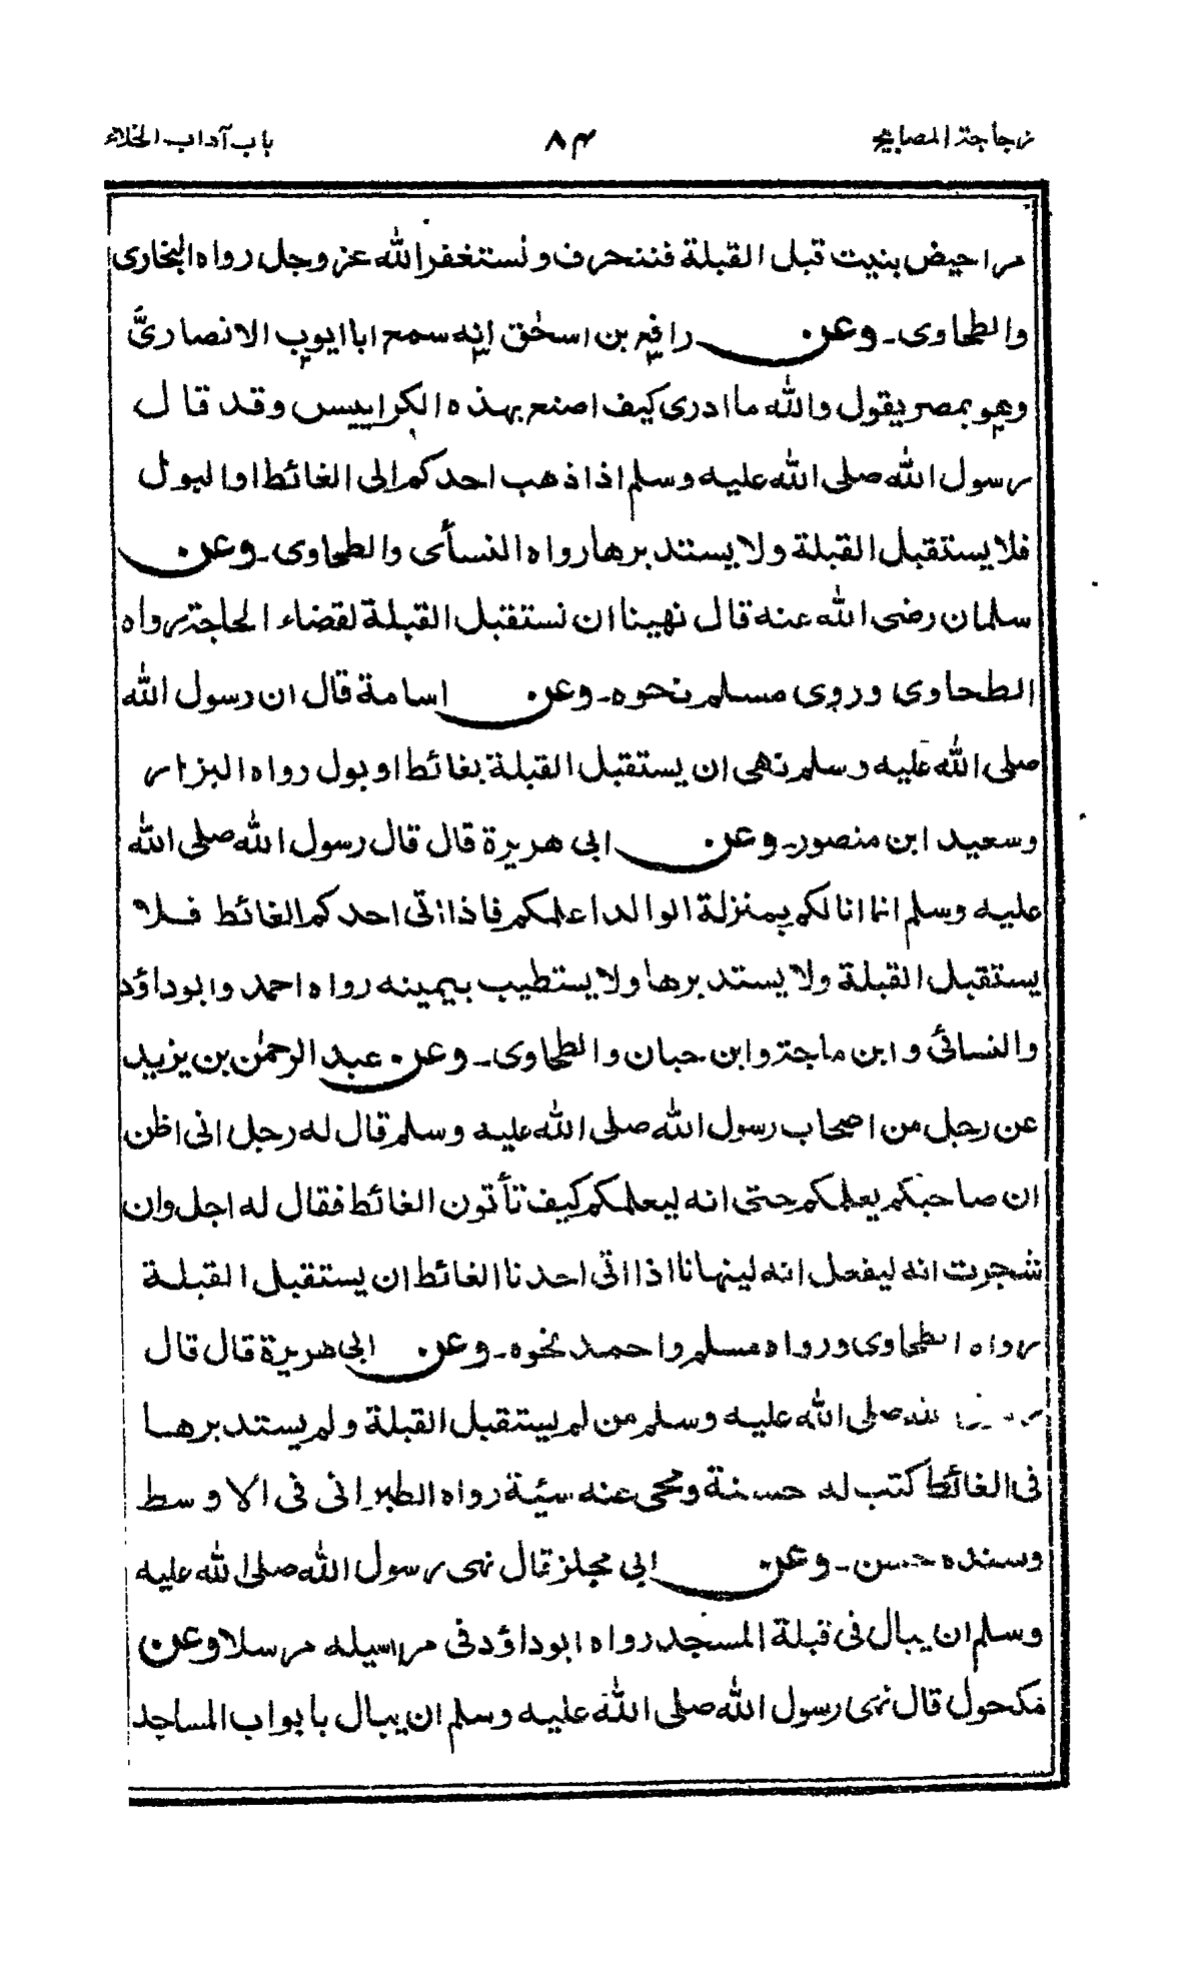 زجاجة المصابيح ٨٤ باب آداب الخلاء
مراحيض بنيت قبل القبلة فننحرف ونستغفر الله عز وجل رواه البخاري
والطحاوى۔ وعن رافع بن اسحٰق انه سمع ابا ايوب الانصاريَّ
وهو بمصر يقول والله ما ادرى كيف اصنع بهذه الكراييس وقد قال
رسول الله صلى الله عليه وسلم اذا ذهب احدكم الى الغائط او البول
فلا يستقبل القبلة ولا يستدبرها رواه النسأى والطحاوى۔ وعن
سلمان رضى الله عنه قال نهينا ان نستقبل القبلة لقضاء الحاجة رواه
الطحاوى وروى مسلم نحوه۔ وعن اسامة قال ان رسول الله
صلى الله عليه وسلم نهى ان يستقبل القبلة بغائط او بول رواه البزار
وسعيد ابن منصور۔ وعن ابى هريرة قال قال رسول الله صلى الله
عليه وسلم انما انا لكم بمنزلة الوالد اعلمكم فاذا اتى احدكم الغائط فلا
يستقبل القبلة ولا يستدبرها ولا يستطيب بيمينه رواه احمد وابوداؤد
والنسائى وابن ماجة وابن حبان والطحاوى۔ وعن عبد الرحمٰن بن يزيد
عن رجل من اصحاب رسول الله صلى الله عليه وسلم قال له رجل انى اظن
ان صاحبكم يعلمكم حتى انه ليعلمكم كيف تأتون الغائط فقال له اجل وان
شجرت انه ليفعل انه لينهانا اذا اتى احدنا الغائط ان يستقبل القبلة
رواه الطحاوى ورواه مسلم واحمد نحوه۔ وعن ابى هريرة قال قال
الله صلى الله عليه وسلم من لم يستقبل القبلة ولم يستدبرها
فى الغائط كتب له حسنة ومحى عنه سيئة رواه الطبرانى فى الاوسط
وسنده حسن۔ وعن ابى مجلز قال نهى رسول الله صلى الله عليه
وسلم ان يبال فى قبلة المسجد رواه ابوداؤد فى مراسيله مرسلا وعن
مكحول قال نهى رسول الله صلى الله عليه وسلم ان يبال بابواب المساجد